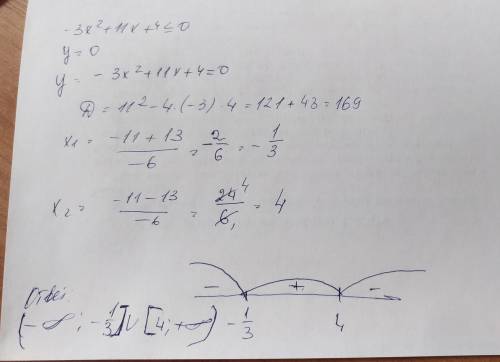 -3x²+11x+4≤0
y=0
y= -3x²+11x+4=0
D = 11²-4·(-3)·4 = 121+43=169
x₁ = (-11+13)/(-6) = -2/6 = -1/3
x₂ = (-11-13)/(-6) = 24/6 = 4
- + -
-1/3 4
Ответ:
(-∞; -1/3] U [4; +∞)